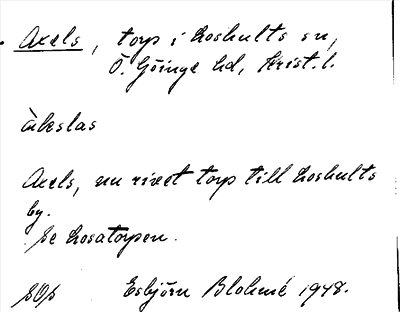 Axels, torp i Loshults sn,
Ö. Göinge hd, Krist. l.
àkslas
Axels, nu rivet torp till Loshults
by.
Se Losatorpen.
Esbjörn Blohmé 1948.